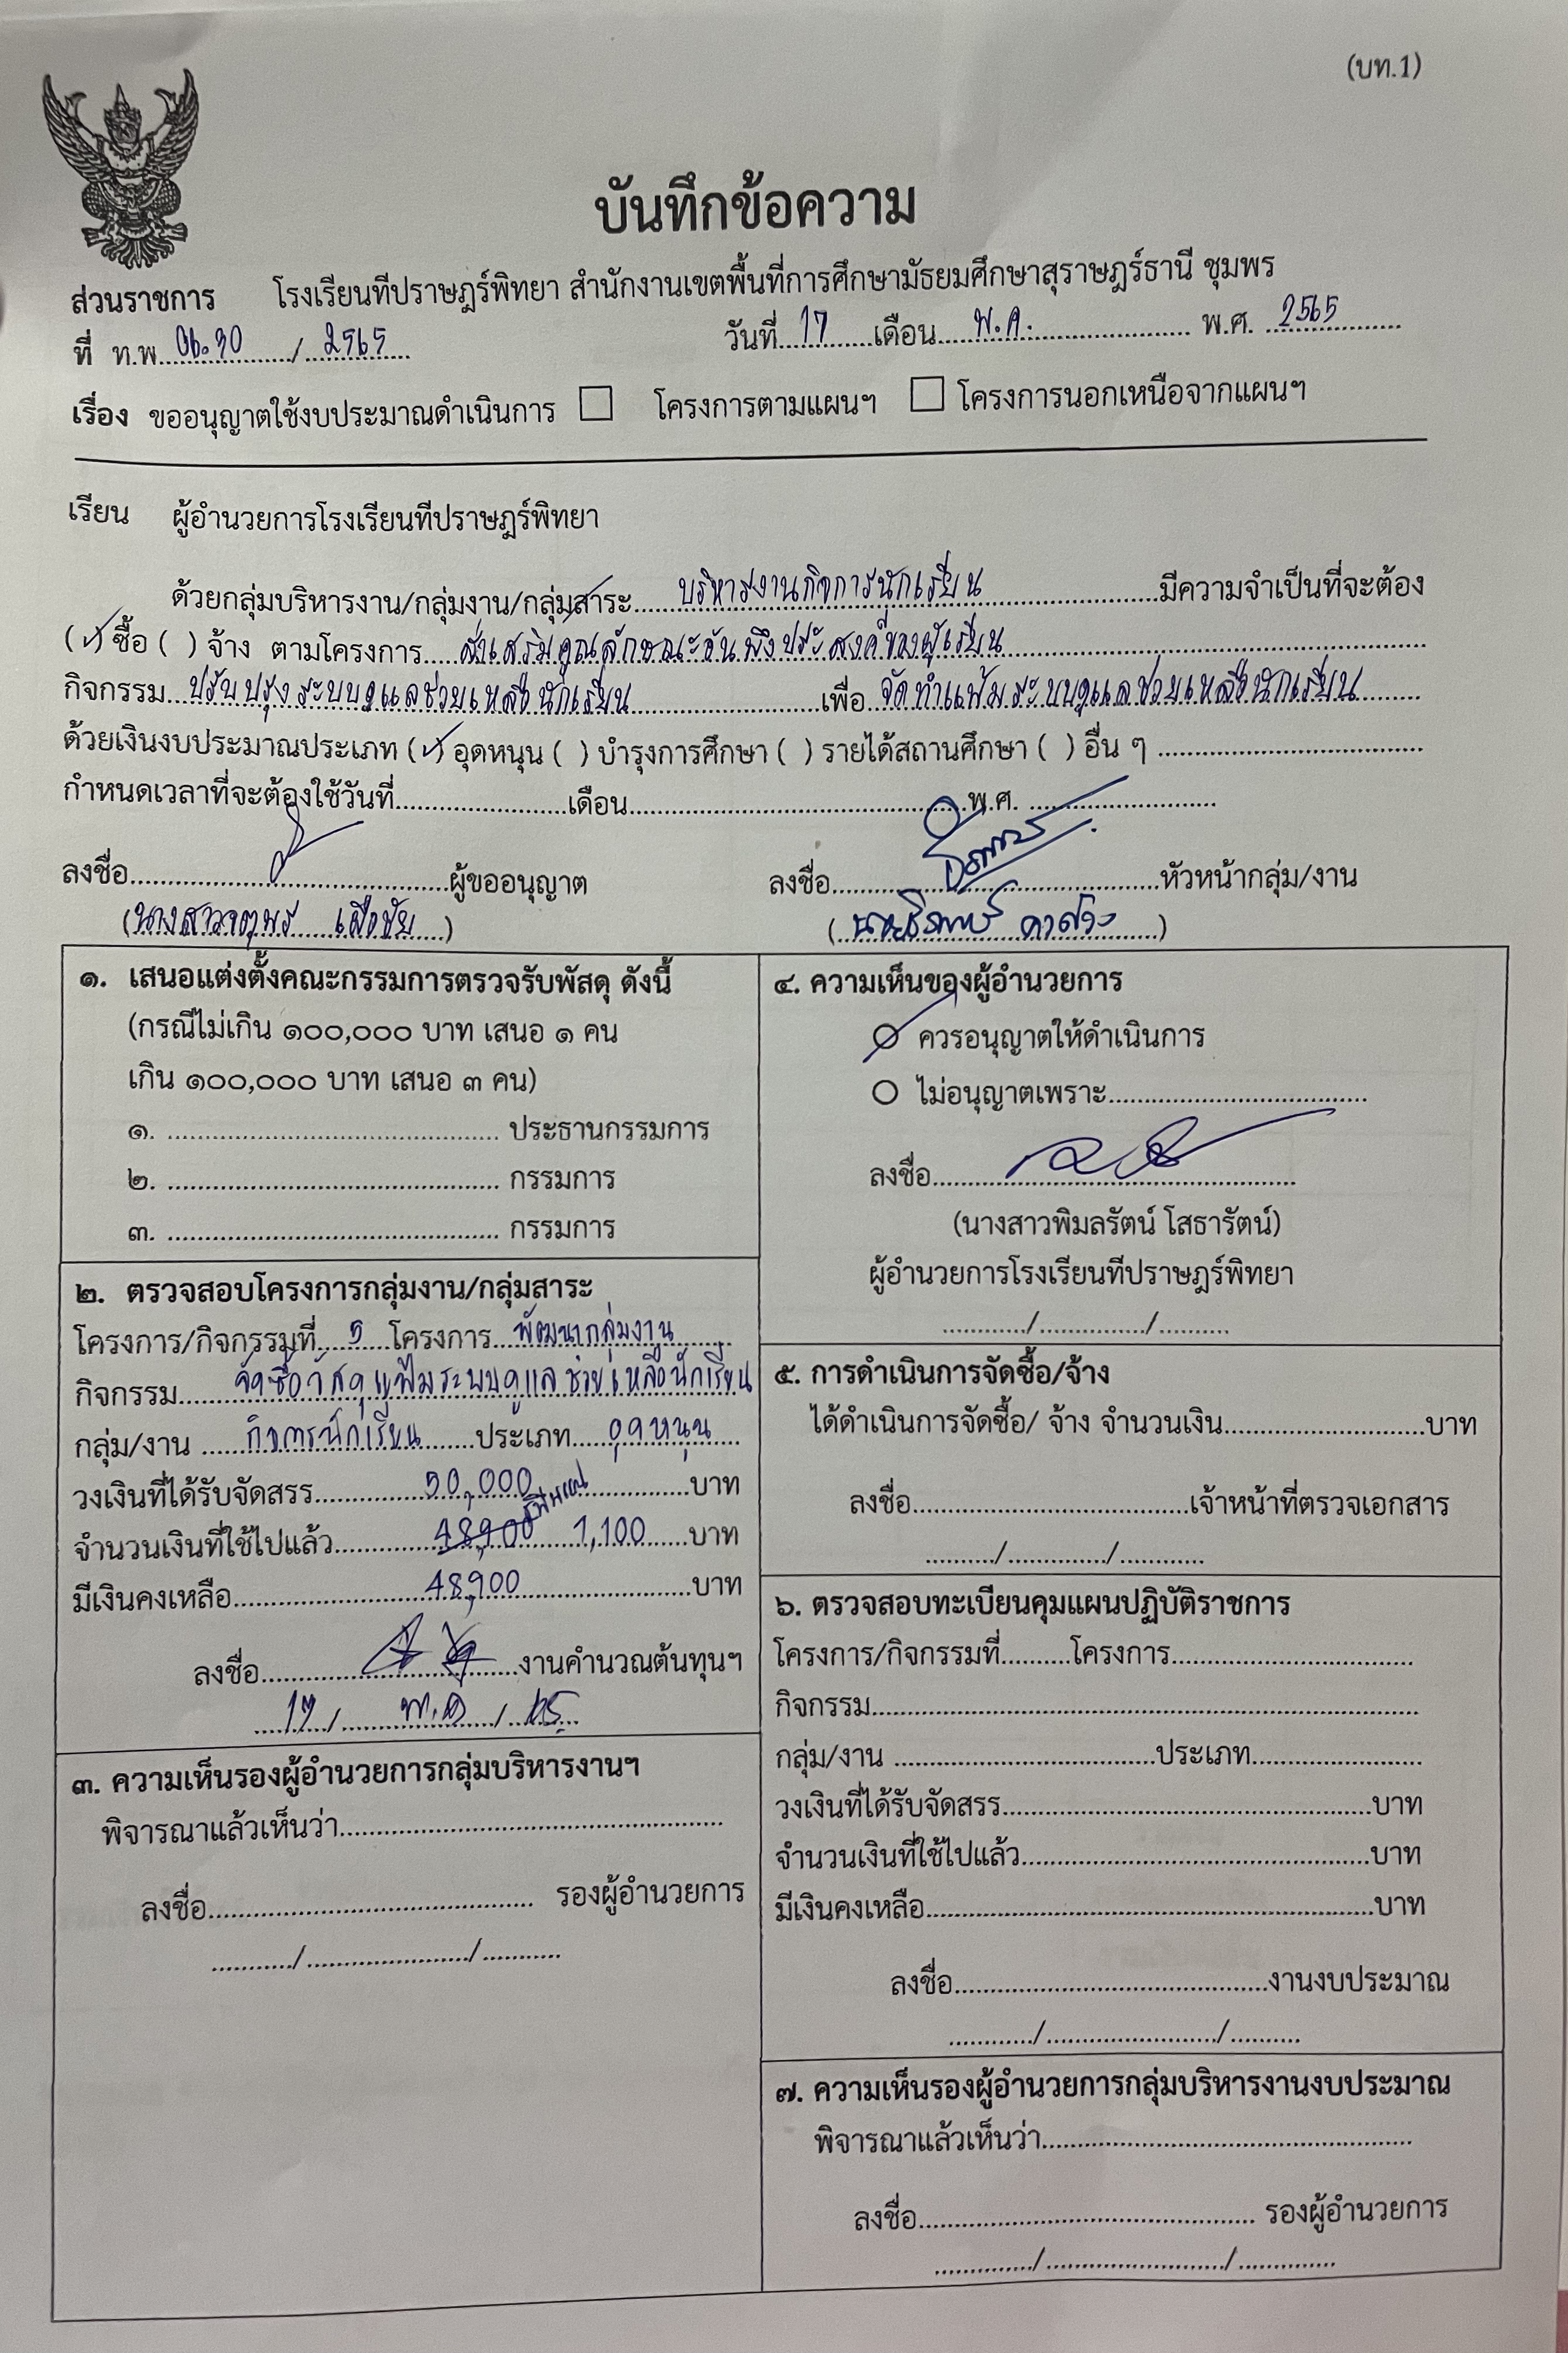 (บท.1)
บันทึกข้อความ
ส่วนราชการ โรงเรียนทีปราษฎร์พิทยา สำนักงานเขตพื้นที่การศึกษามัธยมศึกษาสุราษฎร์ธานี ชุมพร
ที่ ท.พ. / 2565 วันที่ 17 เดือน พ.ค. พ.ศ. 2565
เรื่อง ขออนุญาตใช้งบประมาณดำเนินการ ☐ โครงการตามแผนฯ ☐ โครงการนอกเหนือจากแผนฯ
เรียน ผู้อำนวยการโรงเรียนทีปราษฎร์พิทยา
ด้วยกลุ่มบริหารงาน/กลุ่มงาน/กลุ่มสาระ บริหารงานกิจการนักเรียน มีความจำเป็นที่จะต้อง
(✓) ซื้อ ( ) จ้าง ตามโครงการ ส่งเสริมคุณลักษณะอันพึงประสงค์ของผู้เรียน
กิจกรรม ปรับปรุงระบบดูแลช่วยเหลือนักเรียน เพื่อ จัดทำแฟ้มระบบดูแลช่วยเหลือนักเรียน
ด้วยเงินงบประมาณประเภท (✓) อุดหนุน ( ) บำรุงการศึกษา ( ) รายได้สถานศึกษา ( ) อื่น ๆ
กำหนดเวลาที่จะต้องใช้วันที่ เดือน พ.ศ.
ลงชื่อ ผู้ขออนุญาต ลงชื่อ หัวหน้ากลุ่ม/งาน
(นางสาวจตุพร )
๑. เสนอแต่งตั้งคณะกรรมการตรวจรับพัสดุ ดังนี้
(กรณีไม่เกิน ๑๐๐,๐๐๐ บาท เสนอ ๑ คน
เกิน ๑๐๐,๐๐๐ บาท เสนอ ๓ คน)
๑. ประธานกรรมการ
๒. กรรมการ
๓. กรรมการ
๒. ตรวจสอบโครงการกลุ่มงาน/กลุ่มสาระ
โครงการ/กิจกรรมที่ 5 โครงการ พัฒนากลุ่มงาน
กิจกรรม จัดซื้อวัสดุแฟ้มระบบดูแลช่วยเหลือนักเรียน
กลุ่ม/งาน กิจการนักเรียน ประเภท อุดหนุน
วงเงินที่ได้รับจัดสรร 50,000 บาท
จำนวนเงินที่ใช้ไปแล้ว 48,900 1,100 บาท
มีเงินคงเหลือ 48,900 บาท
ลงชื่อ งานคำนวณต้นทุนฯ
17 / พ.ค / 65
๓. ความเห็นรองผู้อำนวยการกลุ่มบริหารงานฯ
พิจารณาแล้วเห็นว่า
ลงชื่อ รองผู้อำนวยการ
/ /
๔. ความเห็นของผู้อำนวยการ
ควรอนุญาตให้ดำเนินการ
ไม่อนุญาตเพราะ
ลงชื่อ
(นางสาวพิมลรัตน์ โสธารัตน์)
ผู้อำนวยการโรงเรียนทีปราษฎร์พิทยา
/ /
๕. การดำเนินการจัดซื้อ/จ้าง
ได้ดำเนินการจัดซื้อ/ จ้าง จำนวนเงิน บาท
ลงชื่อ เจ้าหน้าที่ตรวจเอกสาร
/ /
๖. ตรวจสอบทะเบียนคุมแผนปฏิบัติราชการ
โครงการ/กิจกรรมที่ โครงการ
กิจกรรม
กลุ่ม/งาน ประเภท
วงเงินที่ได้รับจัดสรร บาท
จำนวนเงินที่ใช้ไปแล้ว บาท
มีเงินคงเหลือ บาท
ลงชื่อ งานงบประมาณ
/ /
๗. ความเห็นรองผู้อำนวยการกลุ่มบริหารงานงบประมาณ
พิจารณาแล้วเห็นว่า
ลงชื่อ รองผู้อำนวยการ
/ /